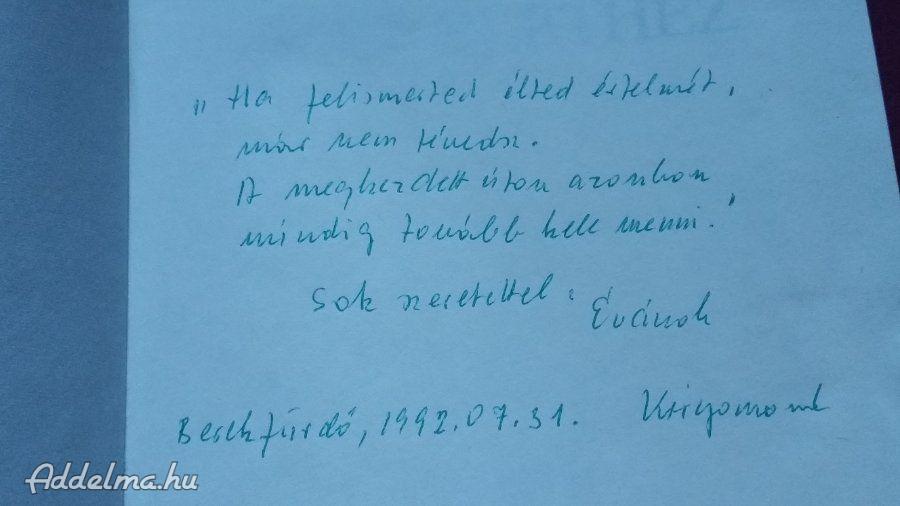 „Ha felismerted élted értelmét,
már nem tévedsz.
A megkezdett úton azonban
mindig tovább kell menni."
Sok szeretettel:
Évának
Berekfürdő, 1992.07.31.
Addelma.hu